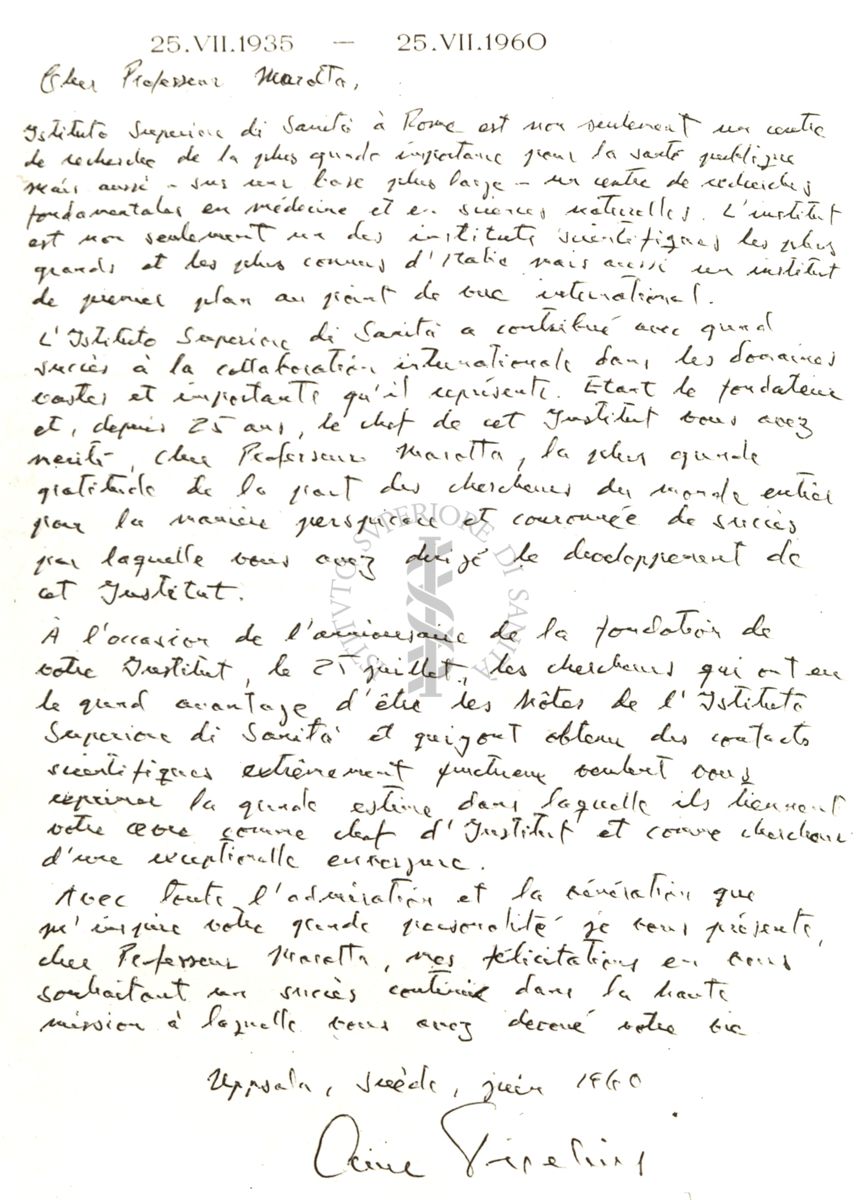 25.VII.1935 — 25.VII.1960
Cher Professeur Marotta,
Istituto Superiore di Sanità à Rome est non seulement un centre
de recherche de la plus grande importance pour la santé publique
mais aussi - sur une base plus large - un centre de recherches
fondamentales en médecine et en sciences naturelles. L'institut
est non seulement un des instituts scientifiques les plus
grands et les plus connus d'Italie mais aussi un institut
de premier plan au point de vue international.
L'Istituto Superiore di Sanità a contribué avec grand
succès à la collaboration internationale dans les domaines
vastes et importants qu'il représente. Etant le fondateur
et, depuis 25 ans, le chef de cet Institut vous avez
merité, cher Professeur Marotta, la plus grande
gratitude de la part des chercheurs du monde entier
pour la manière perspicace et couronnée de succès
par laquelle vous avez dirigé le developpement de
cet Institut.
À l'occasion de l'anniversaire de la fondation de
votre Institut, le 25 juillet, les chercheurs qui ont eu
le grand avantage d'être les hôtes de l'Istituto
Superiore di Sanità et qui y ont obtenu des contacts
scientifiques extrêmement fructueux veulent vous
exprimer la grande estime dans laquelle ils tiennent
votre œvre comme chef d'Institut et comme chercheur
d'une exceptionelle envergure.
Avec toute l'admiration et la vénération que
m'inspire votre grande personalité je vous présente,
cher Professeur Marotta, mes félicitations en vous
souhaitant un succès continié dans la haute
mission à laquelle vous avez devoué votre vie
Uppsala, Suède, juin 1960
Arne Tiselius
ISTITVTO SVPERIORE DI SANITÀ